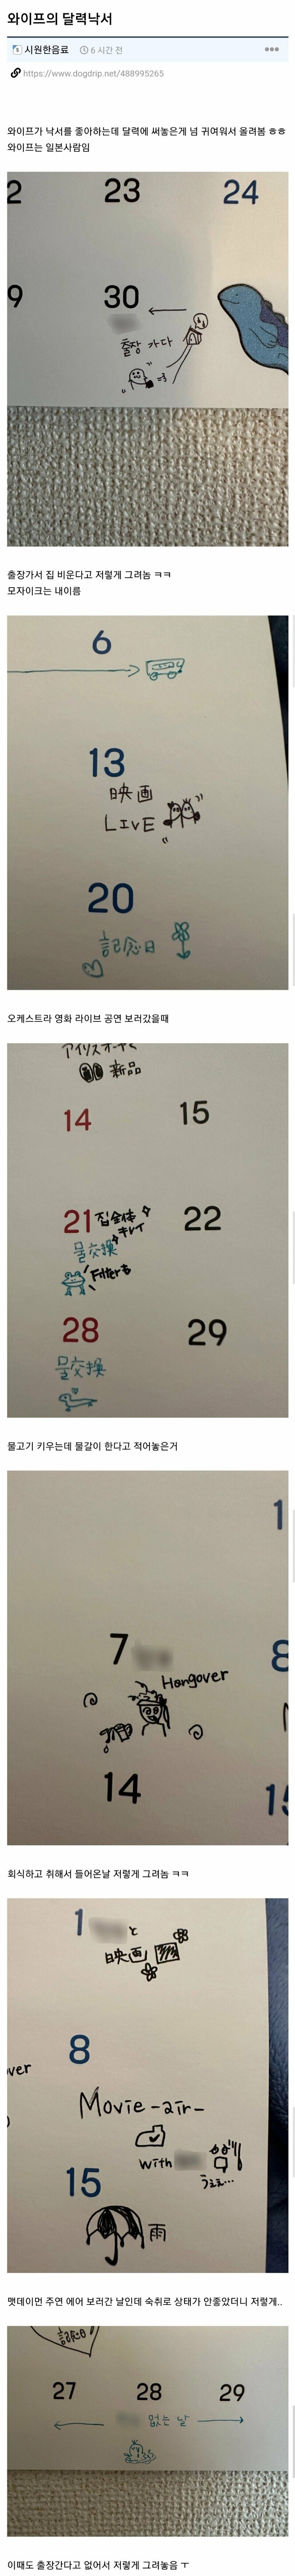 와이프의 달력낙서
시원한음료
6 시간 전
https://www.dogdrip.net/488995265
와이프가 낙서를 좋아하는데 달력에 써놓은게 넘 귀여워서 올려봄 ㅎㅎ
와이프는 일본사람임
2 23 24
9 30
출장 가다
출장가서 집 비운다고 저렇게 그려놈 ㅋㅋ
모자이크는 내이름
6
13
映画
LIVE
20
記念日
오케스트라 영화 라이브 공연 보러갔을때
アイリスオーヤマ
新品
14 15
21 집全体 22
キレイ
물交換
Filterも
28 29
물交換
물고기 키우는데 물갈이 한다고 적어놓은거
1
7 8
Hangover
14 15
회식하고 취해서 들어온날 저렇게 그려놈 ㅋㅋ
1 と
映画
8
ver
Movie -air-
with
うぇぇ…
15
雨
맷데이먼 주연 에어 보러간 날인데 숙취로 상태가 안좋았더니 저렇게..
記念日
27 28 29
없는 날
이때도 출장간다고 없어서 저렇게 그려놓음 ㅜ